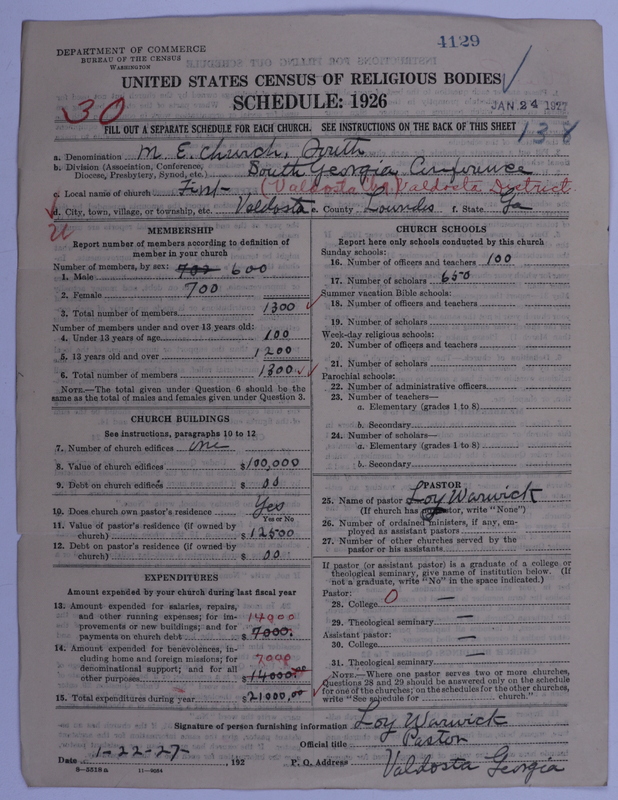 4129
DEPARTMENT OF COMMERCE
BUREAU OF THE CENSUS
WASHINGTON
UNITED STATES CENSUS OF RELIGIOUS BODIES
30
SCHEDULE: 1926
JAN 24 1927
FILL OUT A SEPARATE SCHEDULE FOR EACH CHURCH. SEE INSTRUCTIONS ON THE BACK OF THIS SHEET
138
a. Denomination M. E. Church, South
b. Division (Association, Conference, South Georgia Conference
Diocese, Presbytery, Synod, etc.)
c. Local name of church First (Valdosta Valdosta District
d. City, town, village, or township, etc. Valdosta e. County Lowndes f. State Ga
U
MEMBERSHIP
Report number of members according to definition of
member in your church
Number of members, by sex:
1. Male 700 600
2. Female 700
3. Total number of members 1300
Number of members under and over 13 years old:
4. Under 13 years of age 100
5. 13 years old and over 1200
6. Total number of members 1300
NOTE.—The total given under Question 6 should be the
same as the total of males and females given under Question 3.
CHURCH BUILDINGS
See instructions, paragraphs 10 to 12
7. Number of church edifices one
8. Value of church edifices $100,000
9. Debt on church edifices $ 00
10. Does church own pastor's residence Yes
Yes or No
11. Value of pastor's residence (if owned by
church) $ 12500
12. Debt on pastor's residence (if owned by
church) $ 00
EXPENDITURES
Amount expended by your church during last fiscal year
13. Amount expended for salaries, repairs,
and other running expenses; for im- 14000
provements or new buildings; and for
payments on church debt $ 7000.
14. Amount expended for benevolences, in-
cluding home and foreign missions; for 7000
denominational support; and for all
other purposes $ 14000.00
15. Total expenditures during year $21000,00
CHURCH SCHOOLS
Report here only schools conducted by this church
Sunday schools:
16. Number of officers and teachers 100
17. Number of scholars 650
Summer vacation Bible schools:
18. Number of officers and teachers
19. Number of scholars
Week-day religious schools:
20. Number of officers and teachers
21. Number of scholars
Parochial schools:
22. Number of administrative officers
23. Number of teachers—
a. Elementary (grades 1 to 8)
b. Secondary
24. Number of scholars—
a. Elementary (grades 1 to 8)
b. Secondary
PASTOR
25. Name of pastor Loy Warwick
(If church has no pastor, write "None")
26. Number of ordained ministers, if any, em-
ployed as assistant pastors
27. Number of other churches served by the
pastor or his assistants
If pastor (or assistant pastor) is a graduate of a college or
theological seminary, give name of institution below. (If
not a graduate, write "No" in the space indicated.)
Pastor:
28. College 0 —
29. Theological seminary —
Assistant pastor:
30. College —
31. Theological seminary —
NOTE.—Where one pastor serves two or more churches,
Questions 28 and 29 should be answered only on the schedule
for one of the churches; on the schedules for the other churches,
write "See schedule for church."
Signature of person furnishing information Loy Warwick
Official title Pastor
Date 1-22-27-, 192 P. O. Address Valdosta Georgia
8-5518a 11-9554